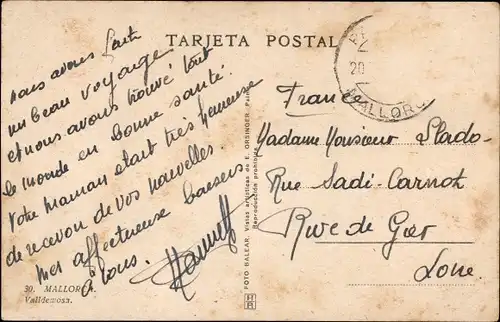 TARJETA POSTAL
nous avons fait
un beau voyage
et nous avons trouvé tout
le monde en bonne santé.
Votre maman etait très heureuse
de recevoir de vos nouvelles.
Mes affectueux baisers
à tous.
30. MALLORCA.
Valldemosa.
FOTO BALEAR, Vistas artísticas de E. ORSINGER, Palma
Reproducción prohibida
20
MALLORC
France
Madame Monsieur Prado
Rue Sadi-Carnot
Rive de Gier
Loire.